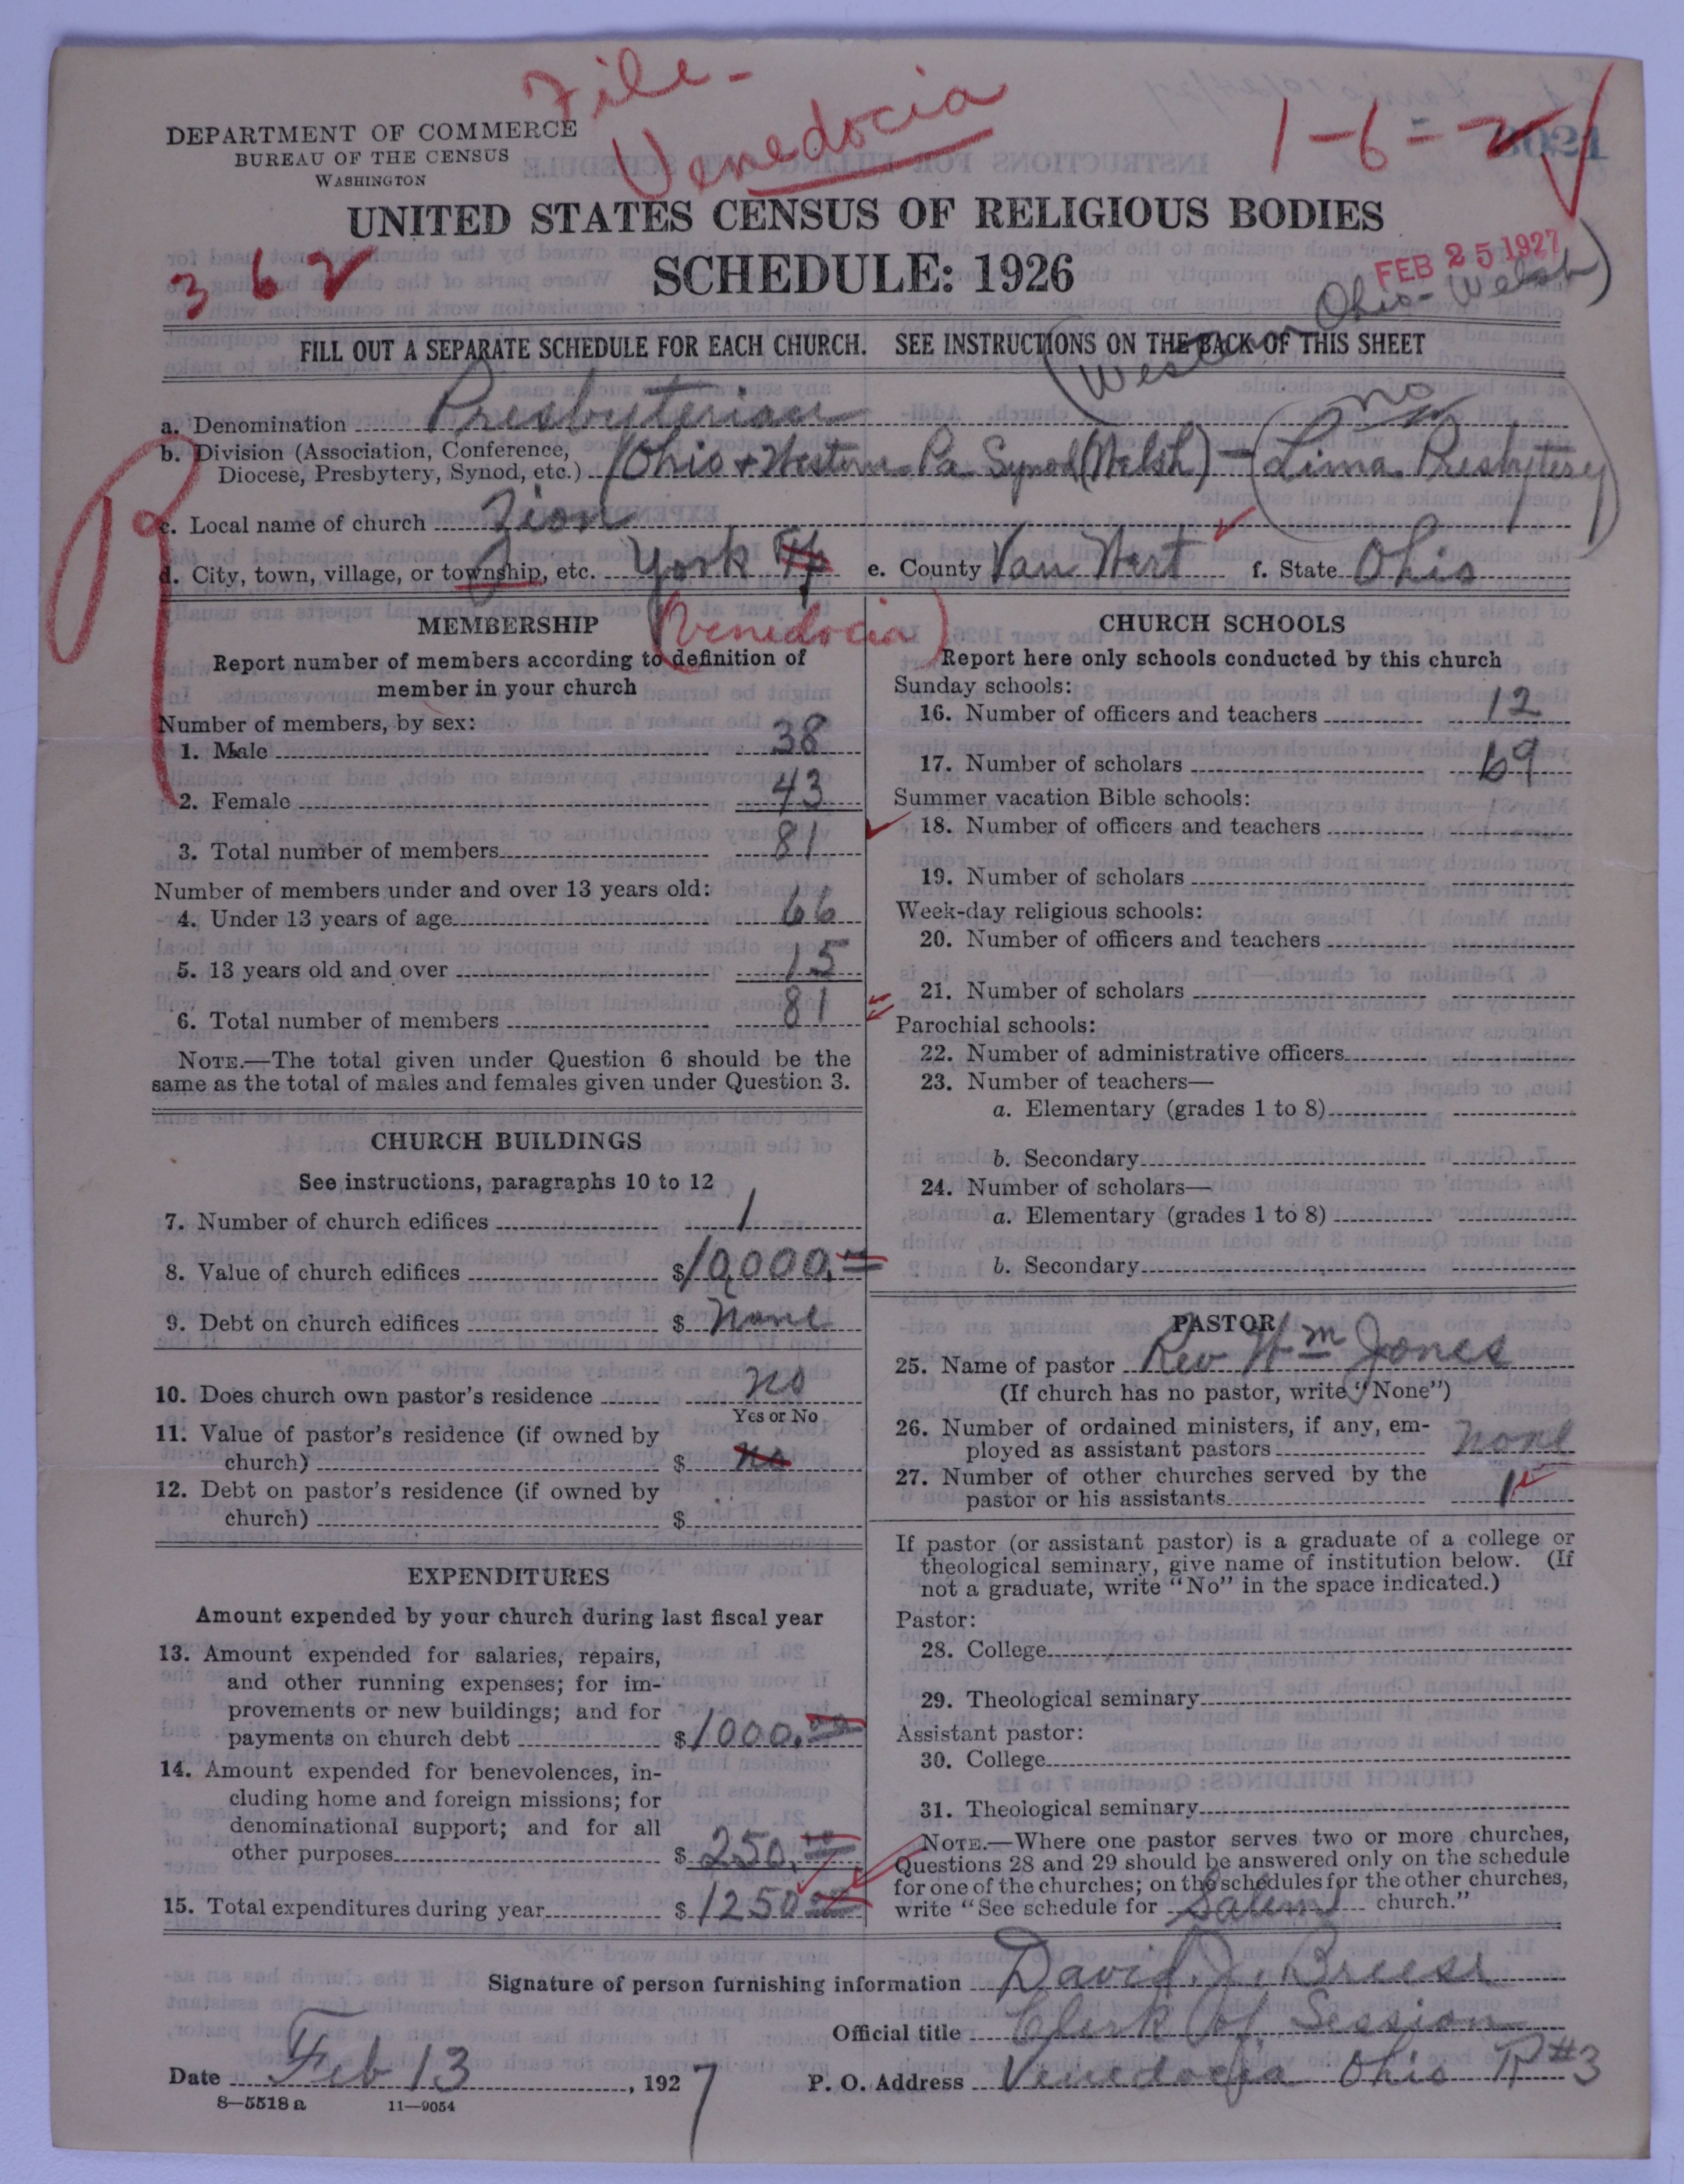 File-
Venedocia
1-6=2
DEPARTMENT OF COMMERCE
BUREAU OF THE CENSUS
WASHINGTON
UNITED STATES CENSUS OF RELIGIOUS BODIES
SCHEDULE: 1926
362
FEB 25 1927
(Western Ohio-Welsh)
FILL OUT A SEPARATE SCHEDULE FOR EACH CHURCH. SEE INSTRUCTIONS ON THE BACK OF THIS SHEET
a. Denomination Presbyterian
no
b. Division (Association, Conference,
Diocese, Presbytery, Synod, etc.) (Ohio + Western Pa Synod (Welsh) - (Lima Presbytery)
c. Local name of church Zion
d. City, town, village, or township, etc. York Tp e. County Van Wert f. State Ohio
(Venedocia)
MEMBERSHIP
Report number of members according to definition of
member in your church
Number of members, by sex:
1. Male 38
2. Female 43
3. Total number of members 81
Number of members under and over 13 years old:
4. Under 13 years of age 66
5. 13 years old and over 15
6. Total number of members 81
NOTE.—The total given under Question 6 should be the
same as the total of males and females given under Question 3.
CHURCH BUILDINGS
See instructions, paragraphs 10 to 12
7. Number of church edifices 1
8. Value of church edifices $10,000.
9. Debt on church edifices $ None
10. Does church own pastor's residence no
Yes or No
11. Value of pastor's residence (if owned by
church) $ no
12. Debt on pastor's residence (if owned by
church) $
EXPENDITURES
Amount expended by your church during last fiscal year
13. Amount expended for salaries, repairs,
and other running expenses; for im-
provements or new buildings; and for
payments on church debt $1000.00
14. Amount expended for benevolences, in-
cluding home and foreign missions; for
denominational support; and for all
other purposes $250.00
15. Total expenditures during year $1250.00
CHURCH SCHOOLS
Report here only schools conducted by this church
Sunday schools:
16. Number of officers and teachers 12
17. Number of scholars 69
Summer vacation Bible schools:
18. Number of officers and teachers
19. Number of scholars
Week-day religious schools:
20. Number of officers and teachers
21. Number of scholars
Parochial schools:
22. Number of administrative officers
23. Number of teachers—
a. Elementary (grades 1 to 8)
b. Secondary
24. Number of scholars—
a. Elementary (grades 1 to 8)
b. Secondary
PASTOR
25. Name of pastor Rev Wm Jones
(If church has no pastor, write "None")
26. Number of ordained ministers, if any, em-
ployed as assistant pastors none
27. Number of other churches served by the
pastor or his assistants 1
If pastor (or assistant pastor) is a graduate of a college or
theological seminary, give name of institution below. (If
not a graduate, write "No" in the space indicated.)
Pastor:
28. College
29. Theological seminary
Assistant pastor:
30. College
31. Theological seminary
NOTE.—Where one pastor serves two or more churches,
Questions 28 and 29 should be answered only on the schedule
for one of the churches; on the schedules for the other churches,
write "See schedule for Salem church."
Signature of person furnishing information David J. Breese
Official title Clerk Of Session
Date Feb 13, 1927 P. O. Address Venedocia Ohio R#3
8—5518 a 11—9054